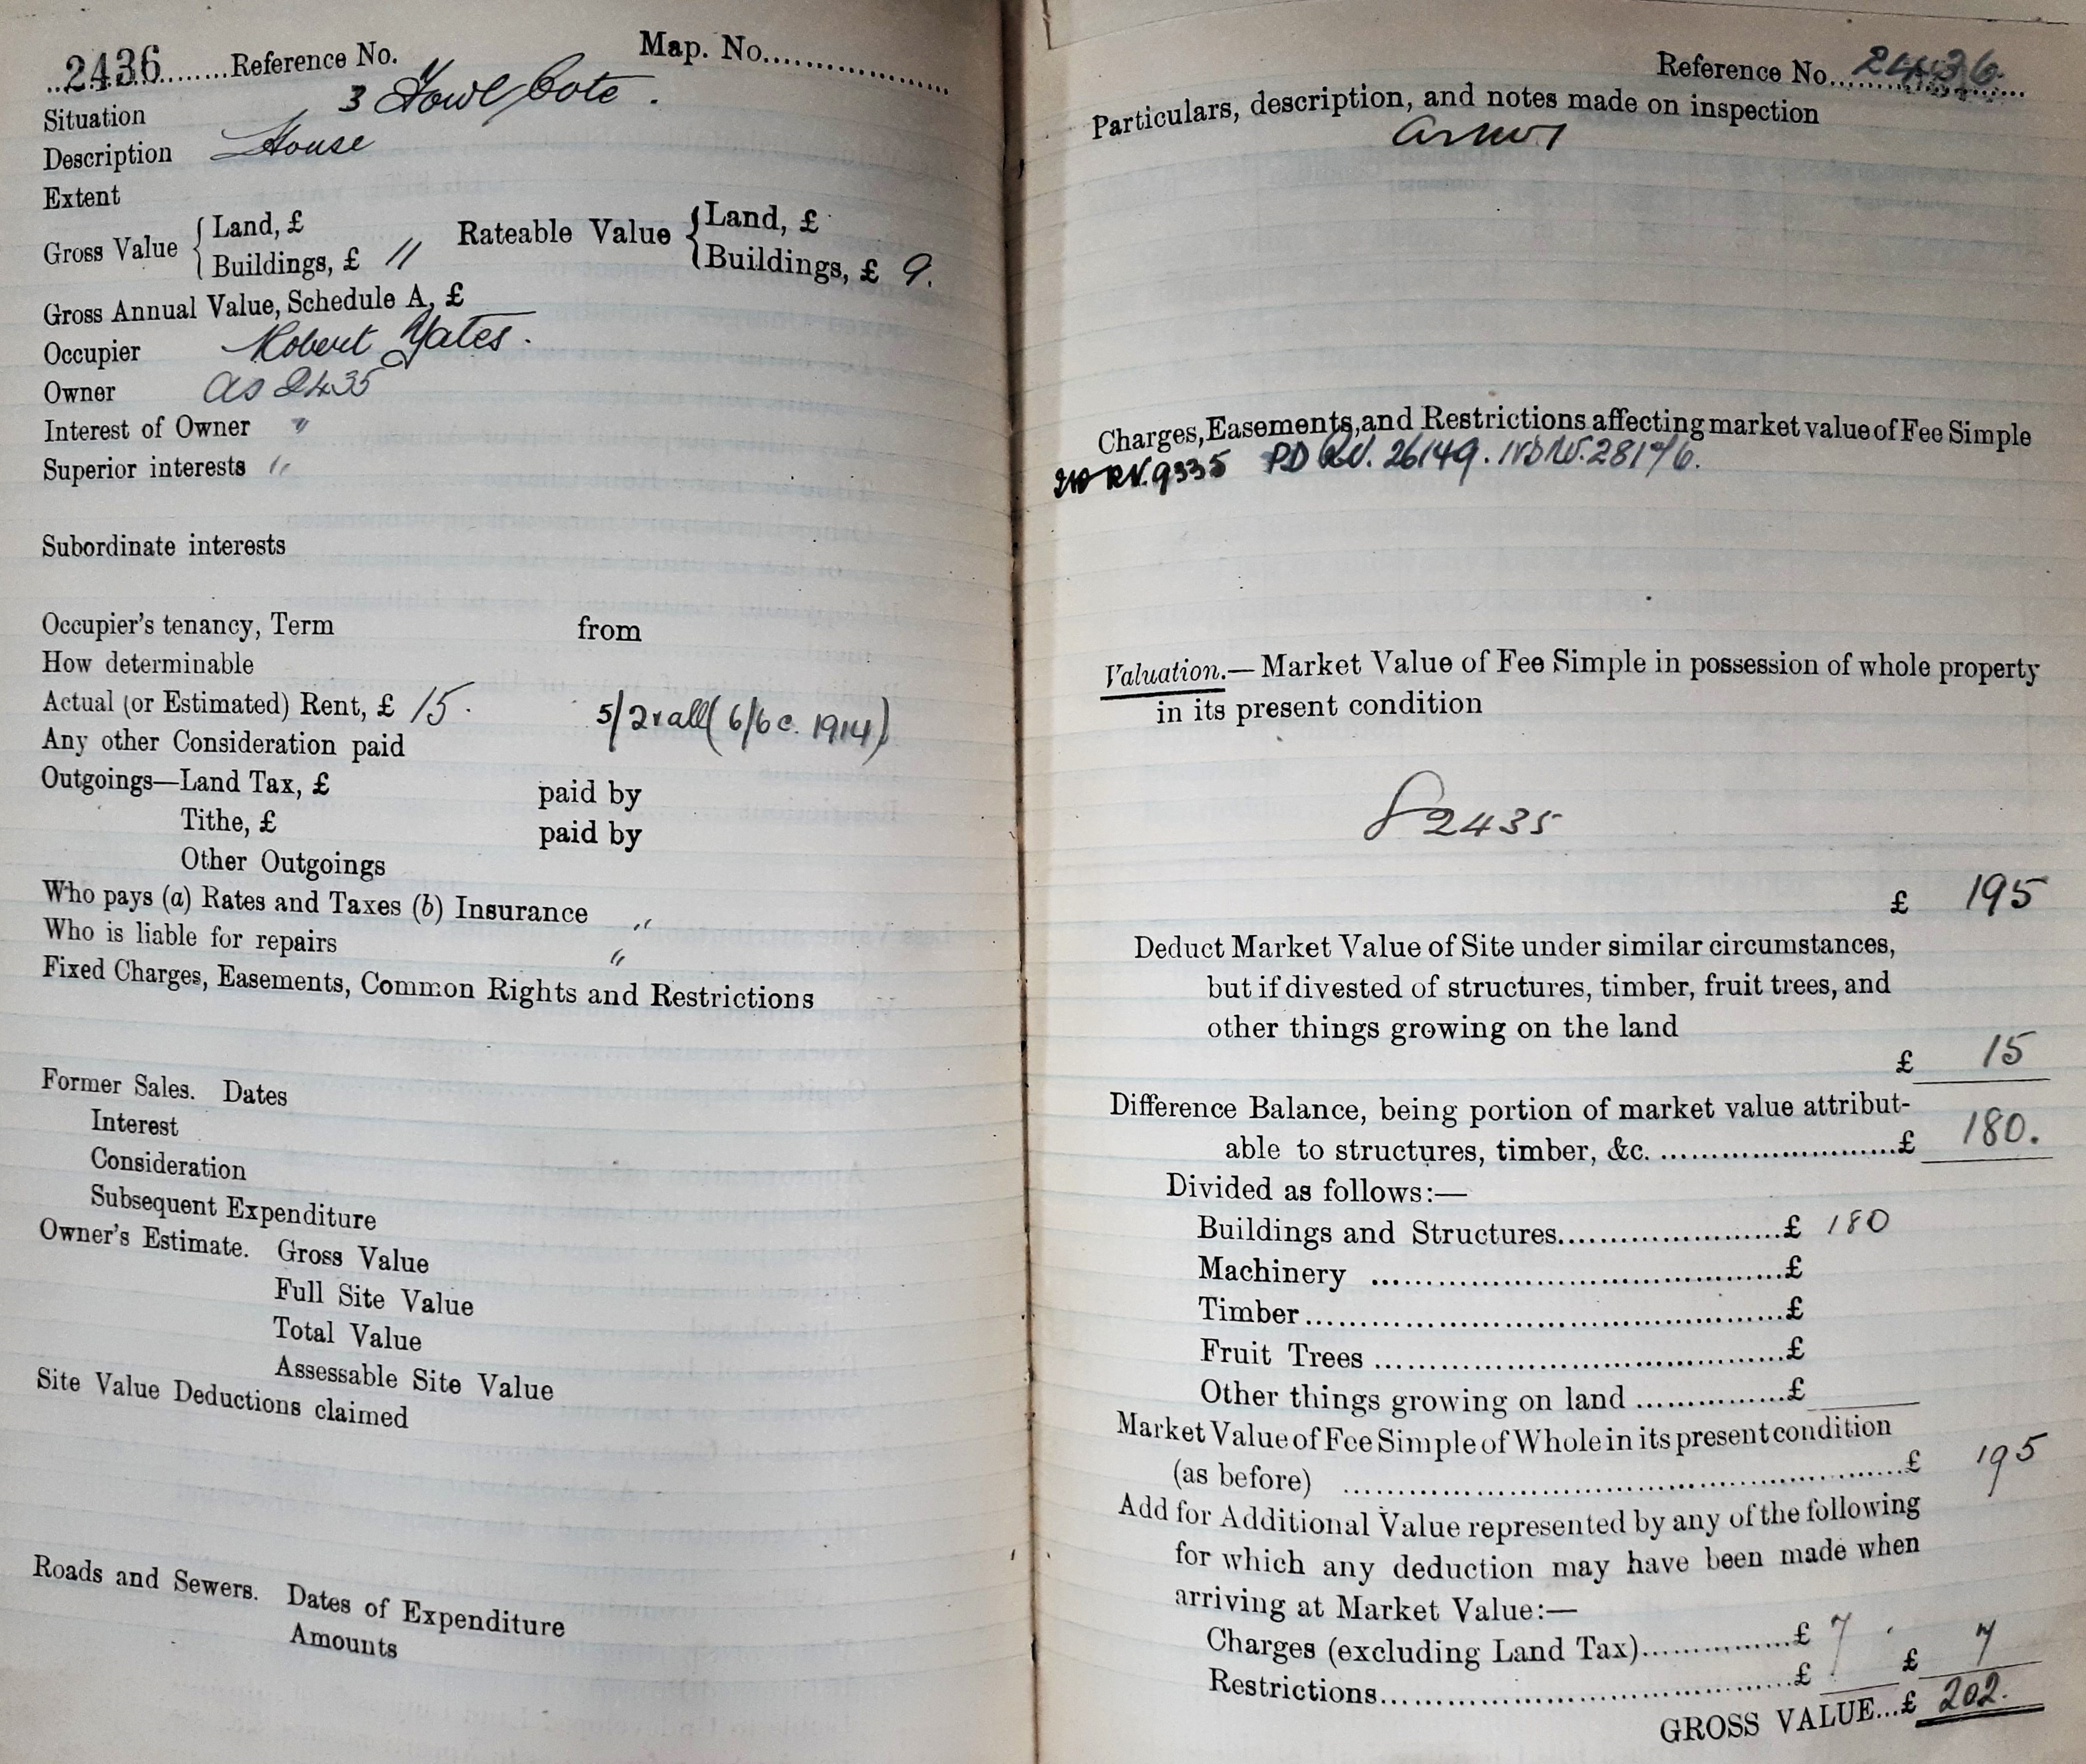 2436 Reference No. Map. No.
Situation 3 Fowl Cote.
Description House
Extent
Gross Value { Land, £ Rateable Value { Land, £
Buildings, £ 11 Buildings, £ 9.
Gross Annual Value, Schedule A, £
Occupier Robert Yates.
Owner as 2435
Interest of Owner "
Superior interests "
Subordinate interests
Occupier's tenancy, Term from
How determinable
Actual (or Estimated) Rent, £ 15. 5/2 & all (6/6 c. 1914)
Any other Consideration paid
Outgoings—Land Tax, £ paid by
Tithe, £ paid by
Other Outgoings
Who pays (a) Rates and Taxes (b) Insurance "
Who is liable for repairs "
Fixed Charges, Easements, Common Rights and Restrictions
Former Sales. Dates
Interest
Consideration
Subsequent Expenditure
Owner's Estimate. Gross Value
Full Site Value
Total Value
Assessable Site Value
Site Value Deductions claimed
Roads and Sewers. Dates of Expenditure
Amounts
Reference No. 2436
Particulars, description, and notes made on inspection
Charges, Easements, and Restrictions affecting market value of Fee Simple
RV. 9335 PD RV. 26149.
Valuation.—Market Value of Fee Simple in possession of whole property
in its present condition
2435
£ 195
Deduct Market Value of Site under similar circumstances,
but if divested of structures, timber, fruit trees, and
other things growing on the land
£ 15
Difference Balance, being portion of market value attribut-
able to structures, timber, &c. £ 180.
Divided as follows:—
Buildings and Structures £ 180
Machinery £
Timber £
Fruit Trees £
Other things growing on land £
Market Value of Fee Simple of Whole in its present condition
(as before) £ 195
Add for Additional Value represented by any of the following
for which any deduction may have been made when
arriving at Market Value:—
Charges (excluding Land Tax) £ 7
Restrictions £ £ 7
GROSS VALUE...£ 202.